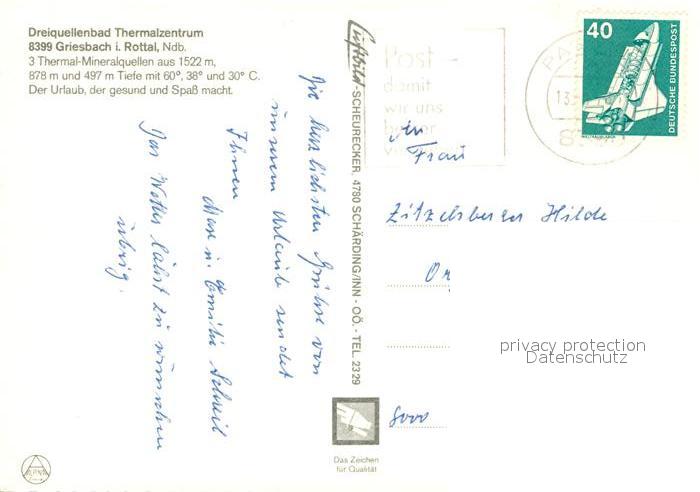 Dreiquellenbad Thermalzentrum
8399 Griesbach i. Rottal, Ndb.
3 Thermal-Mineralquellen aus 1522 m,
878 m und 497 m Tiefe mit 60°, 38° und 30° C.
Der Urlaub, der gesund und Spaß macht.
Die herzlichsten Grüße von
unserem Urlaub sendet
Ihnen
Das Wetter läßt zu wünschen
übrig.
Luftbild-SCHEURECKER, 4780 SCHÄRDING/INN - OÖ. - TEL. 2329
Post -
damit
wir uns
40
DEUTSCHE BUNDESPOST
An
Frau
Zitzelsberger Hilde
privacy protection
Datenschutz
8000
Das Zeichen
für Qualität